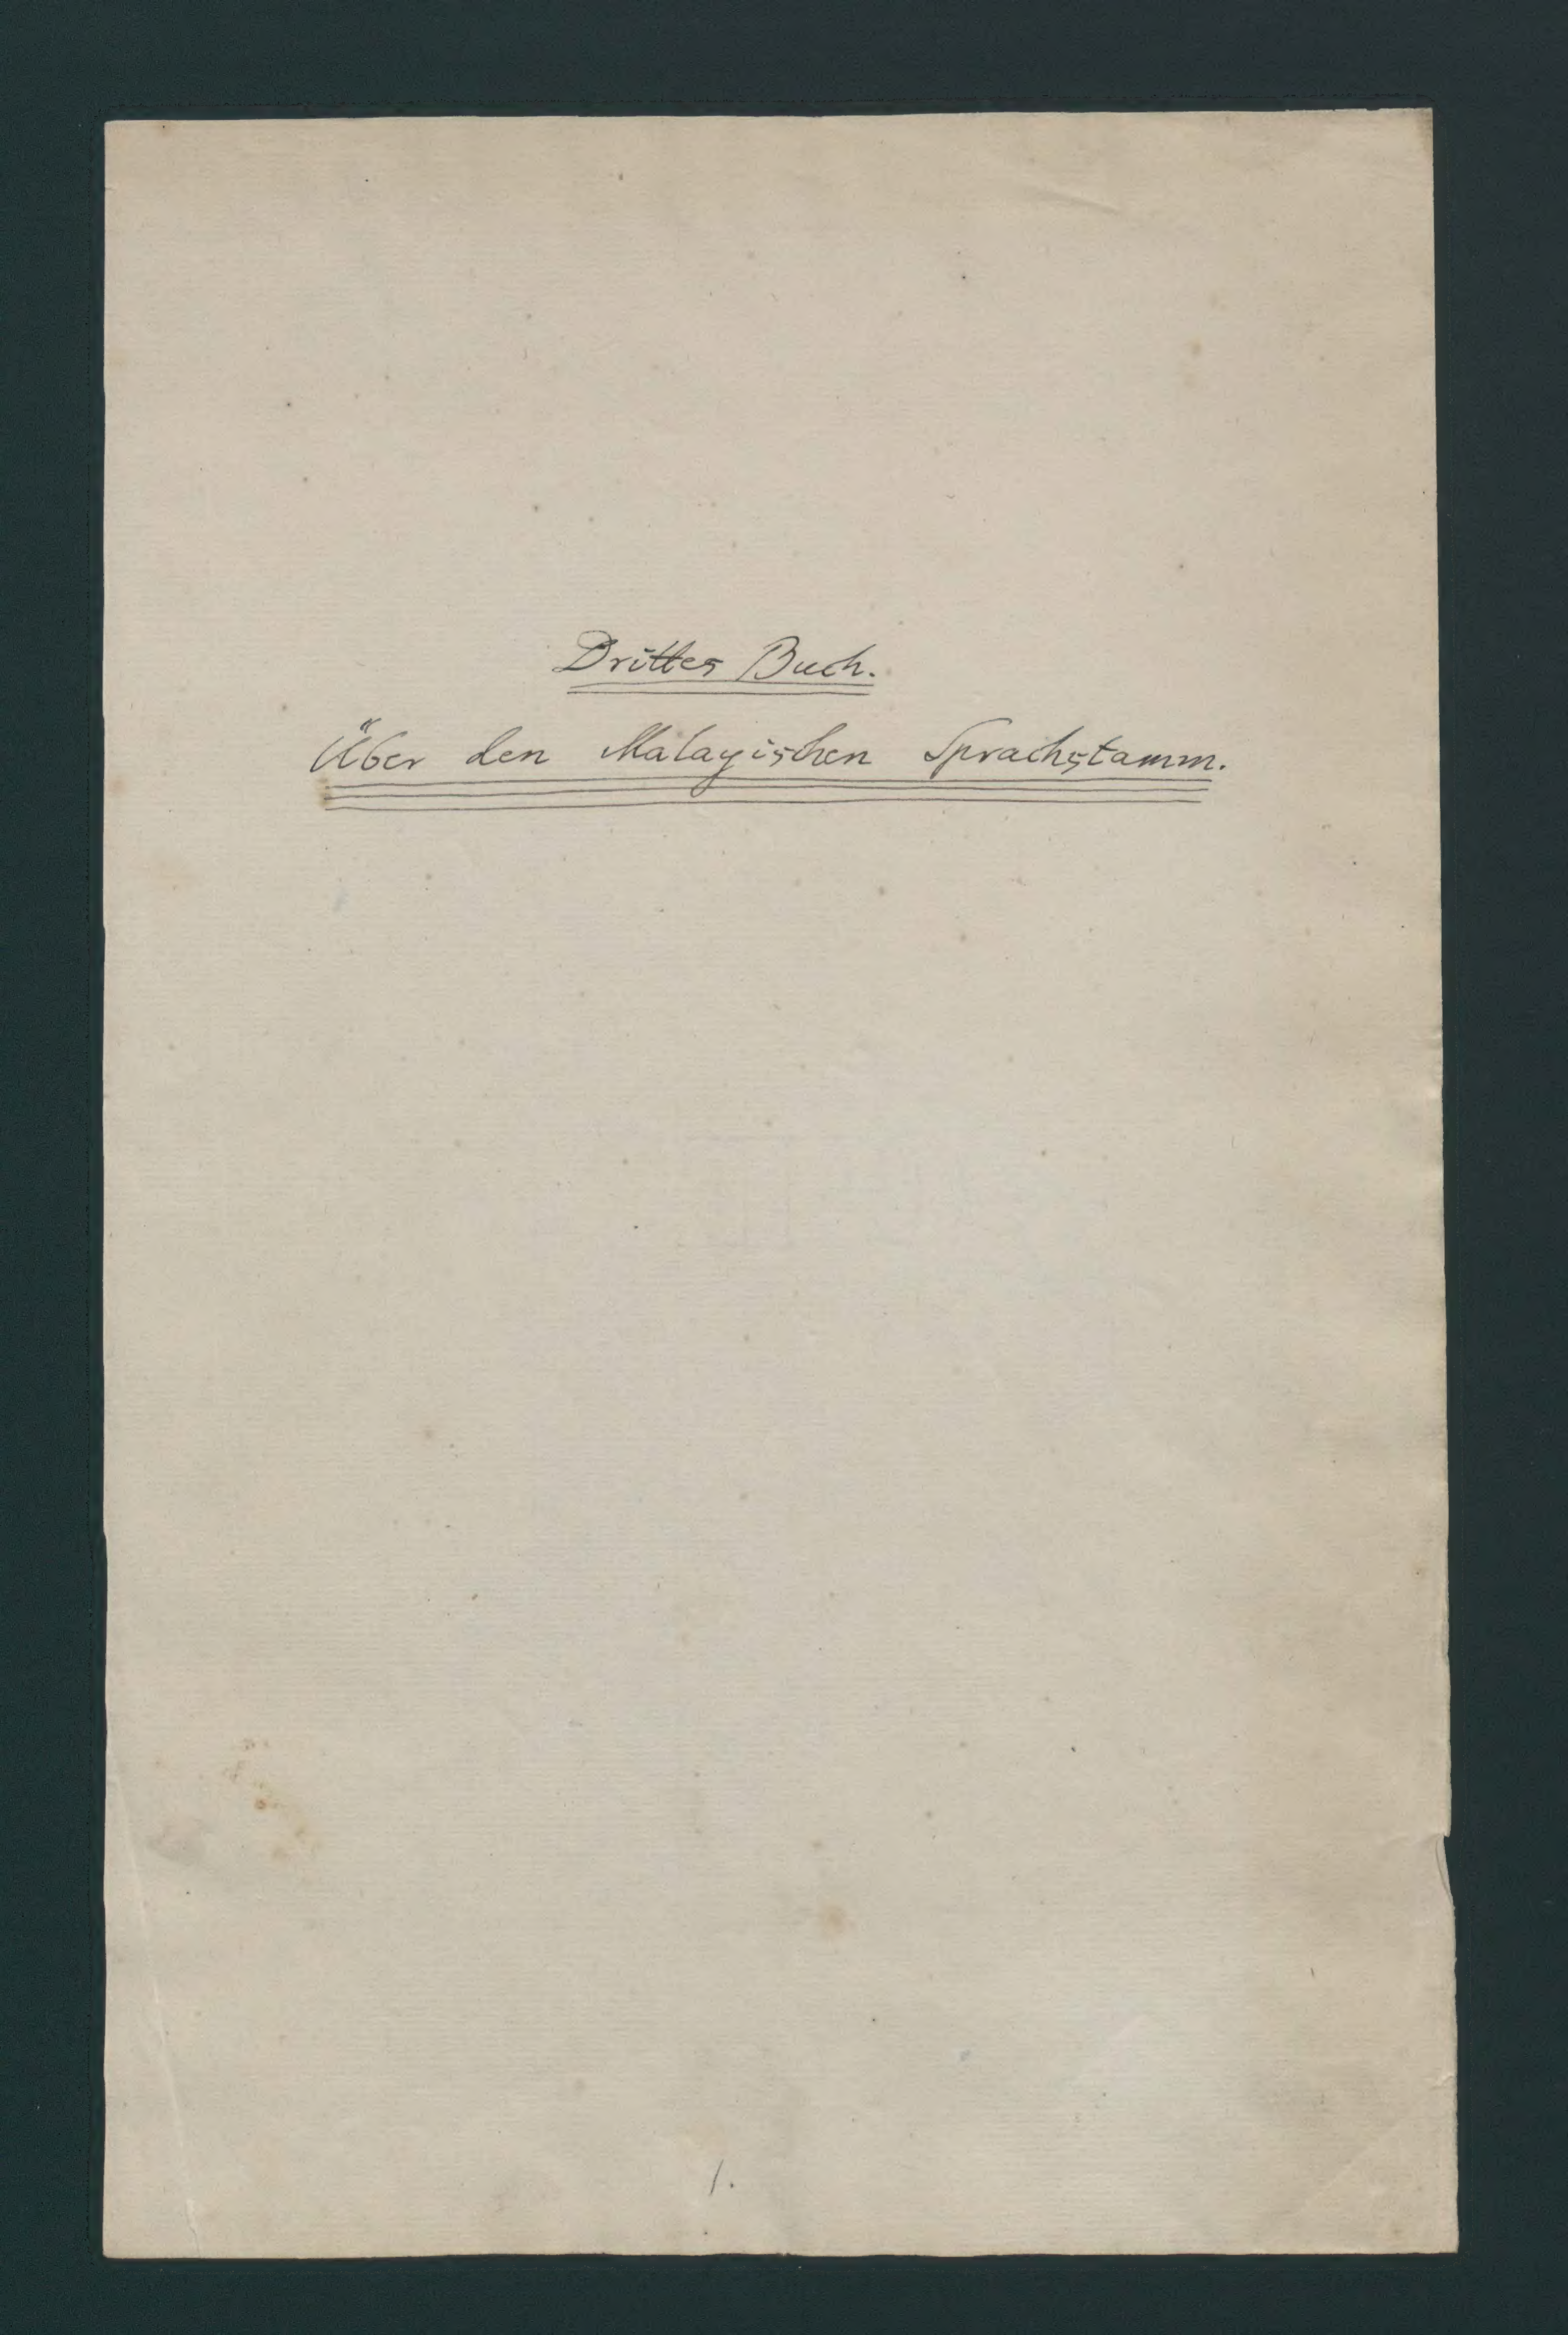 Drittes Buch.
Über den Malayischen Sprachstamm.
1.